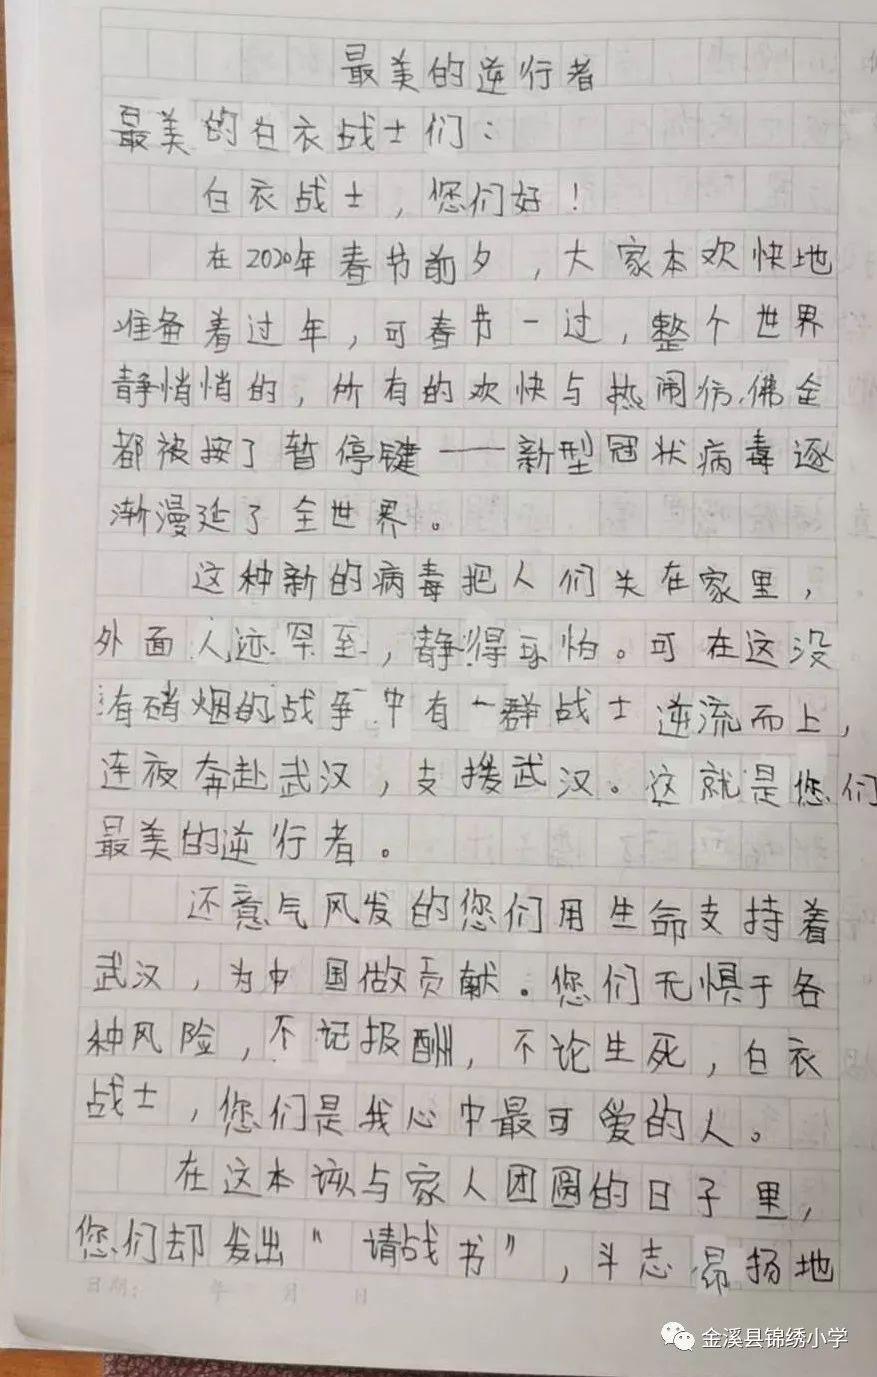 最美的逆行者
最美的白衣战士们：
白衣战士，您们好！
在2020年春节前夕，大家本欢快地
准备着过年，可春节一过，整个世界
静悄悄的，所有的欢快与热闹仿佛全
都被按了暂停键——新型冠状病毒逐
渐漫延了全世界。
这种新的病毒把人们关在家里，
外面人迹罕至，静得可怕。可在这没
有硝烟的战争中有一群战士逆流而上，
连夜奔赴武汉，支援武汉。这就是您们
最美的逆行者。
还意气风发的您们用生命支持着
武汉，为中国做贡献。您们无惧于各
种风险，不记报酬，不论生死，白衣
战士，您们是我心中最可爱的人。
在这本该与家人团圆的日子里，
您们却发出“请战书”，斗志昂扬地
日期： 年 月 日
金溪县锦绣小学